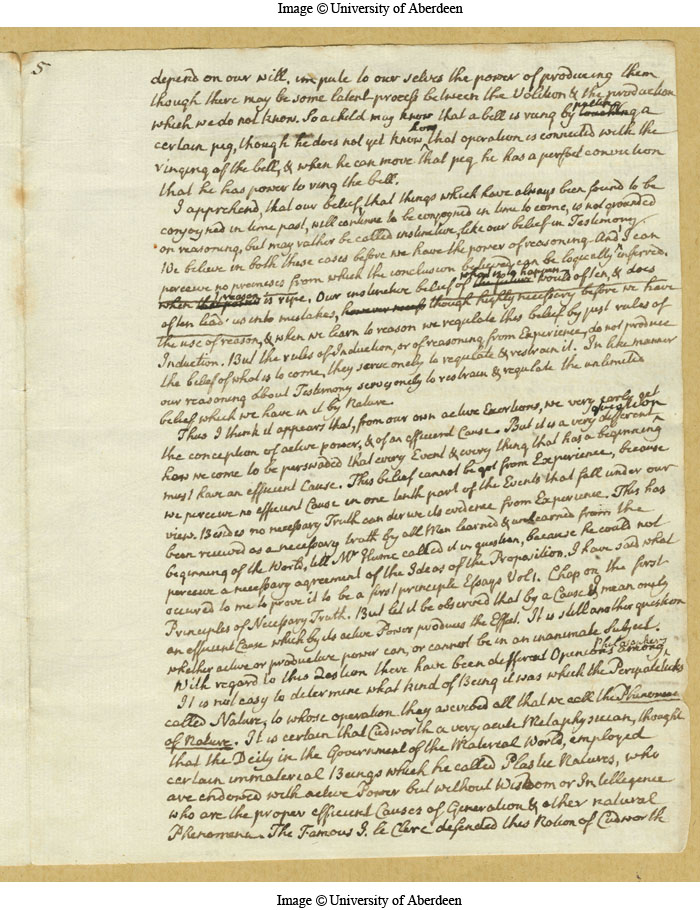 Image © University of Aberdeen
5
depend on our will, impute to our selves the power of producing them
though there may be some latent process between the Volition & the production
which we do not know. So a child may know that a bell is rung by pulling a
certain peg, though he does not yet know how that operation is connected with the
ringing of the bell, & when he can move that peg he has a perfect conviction
that he has power to ring the bell.
I apprehend, that our belief, that things which have always been found to be
conjoyned in time past, will continue to be conjoyned in time to come, is not grounded
on reasoning, but may rather be called instinctive, like our belief in Testimony.
We believe in both these cases before we have the power of reasoning And I can
perceive no premises from which the conclusion believed can be logically inferred.
when reason is ripe. Our instinctive belief of what is to happen often, & does
often lead us into mistakes, though highly necessary before we have
the use of reason, & when we learn to reason we regulate this belief by just rules of
Induction. But the rules of Induction, or of reasoning from Experience, do not produce
the belief of what is to come, they serve onely to regulate & restrain it. In like manner
our reasoning about Testimony serves onely to restrain & regulate the unlimited
belief which we have in it by Nature.
Thus I think it appears that, from our own active Exertions, we very early get
the conception of active power, & of an efficient Cause. But it is a very different question
how we come to be perswaded that every Event & every thing that has a beginning
must have an efficient Cause. This belief cannot be got from Experience, because
we perceive no efficient Cause in one tenth part of the Events that fall under our
view. Besides no necessary Truth can derive its evidence from Experience. This has
been received as a necessary truth by all Men learned & unlearned from the
beginning of the World, till Mr Hume called it in question, because he could not
perceive a necessary agreement of the Ideas of the Proposition. I have said what
occured to me to prove it to be a first principle Essays Vol 1. Chap on the first
Principles of Necessary Truth. But let it be observed that by a Cause I mean onely
an efficient Cause which by its active Power produces the Effect. It is still another question
whether active or productive power can, or cannot be in an inanimate Subject.
With regard to this Question there have been different Opinions among Philosophers
It is not easy to determine what kind of Being it was which the Peripateticks
called Nature, to whose operation they ascribed all that we call the Phenomena
of Nature. It is certain that Cudworth a very acute Metaphysician, thought
that the Deity in the Government of the Material World, employed
certain immaterial Beings which he called Plastic Natures, who
are endowed with active Power but without Wisdom or Intelligence
who are the proper efficient Causes of Generation & other natural
Phenomena. The Famous J. le Clerc defended this Notion of Cudworth
Image © University of Aberdeen